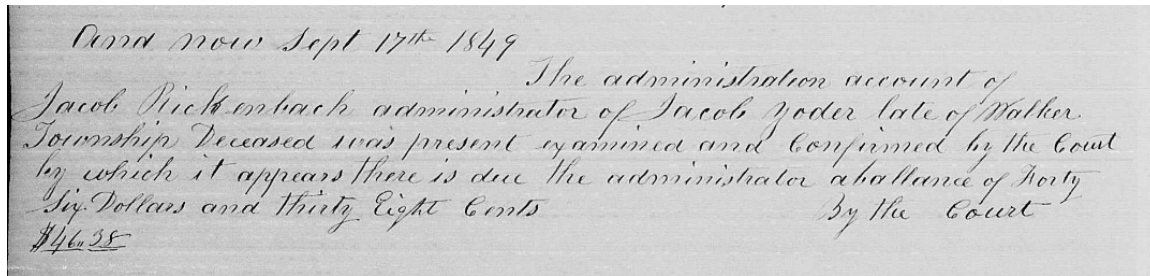 And now Sept 17th 1849
The administration account of
Jacob Rickenbach administrator of Jacob Yoder late of Walker
Township Deceased was present examined and Confirmed by the Court
by which it appears there is due the administrator aballance of Forty
Six Dollars and thirty Eight Cents By the Court
$46,,38